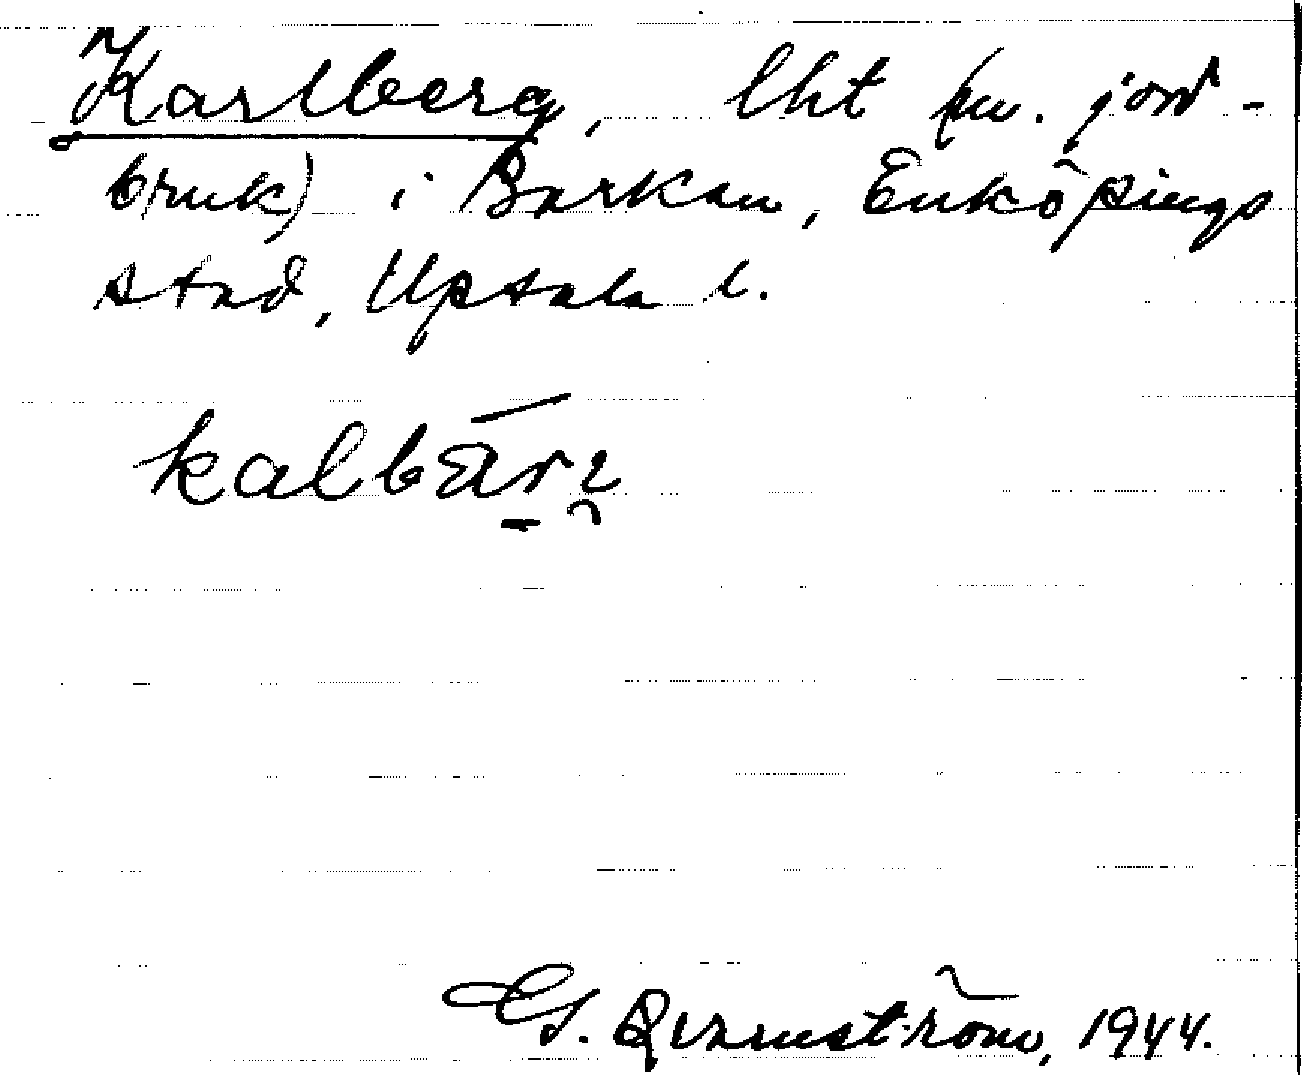 Karlberg, lht (nu. jord-
bruk) i Barkan, Enköpings
stad, Upsala l.
kalbär
G. Qvarnström, 1944.